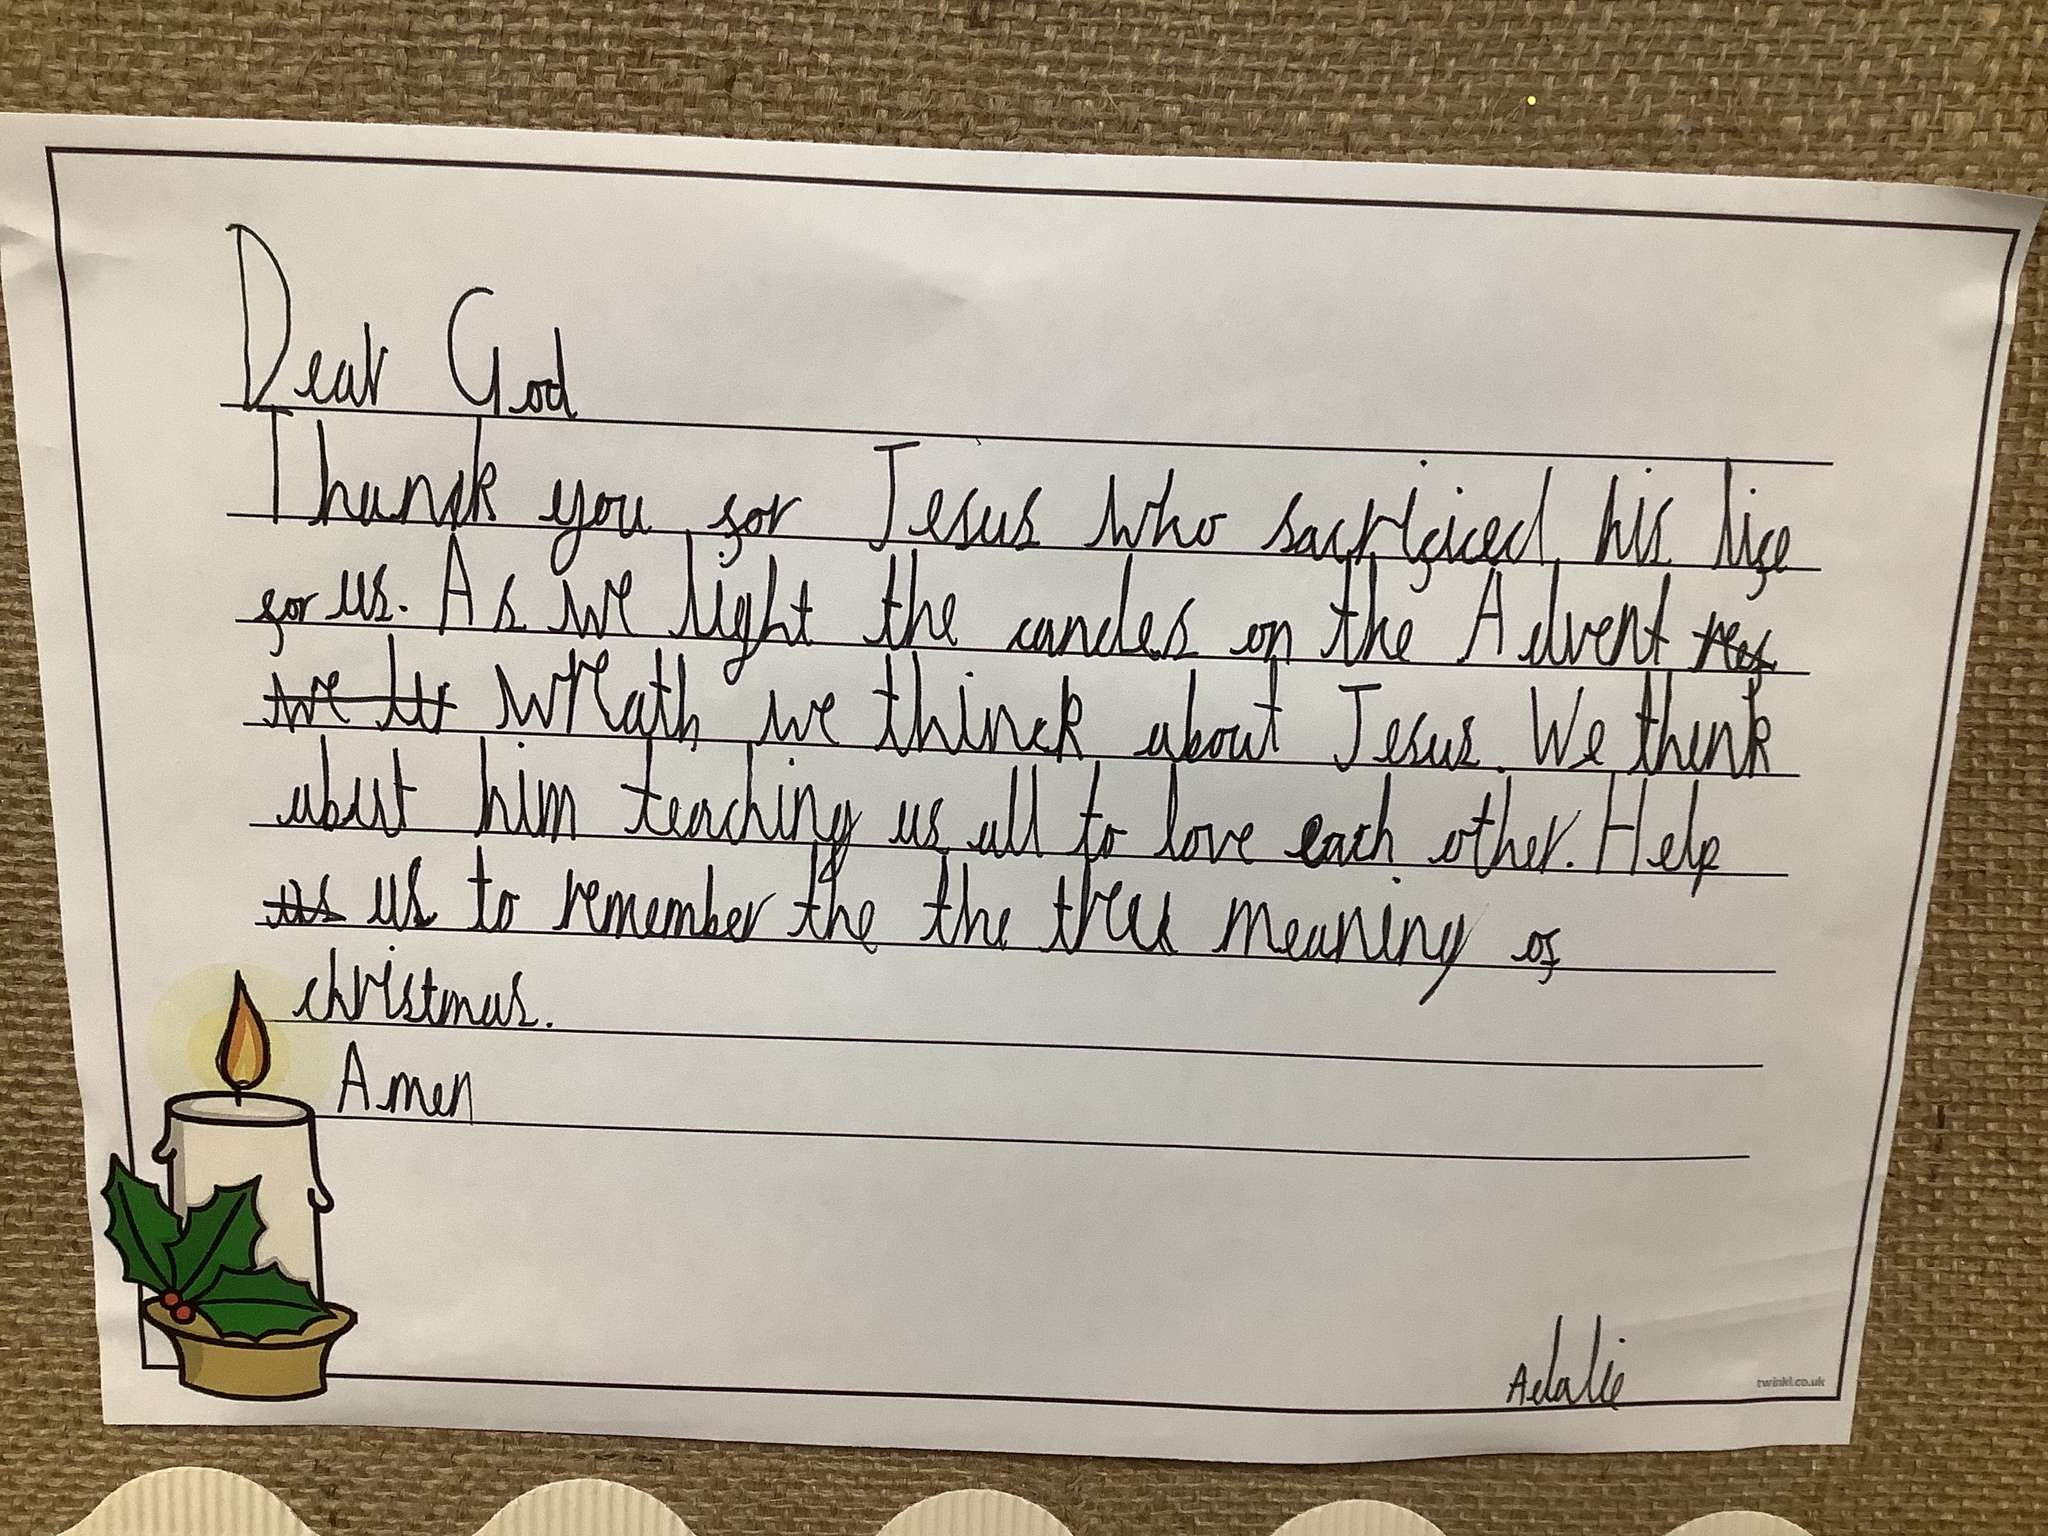 Dear God
Thanck you for Jesus who sacrificed his life
for us. As we light the candes on the Advent
we wreath we thinck about Jesus. We think
about him teaching us all to love each other. Help
us us to remember the the true meaning of
christmas.
Amen
Adalie
twinkl.co.uk